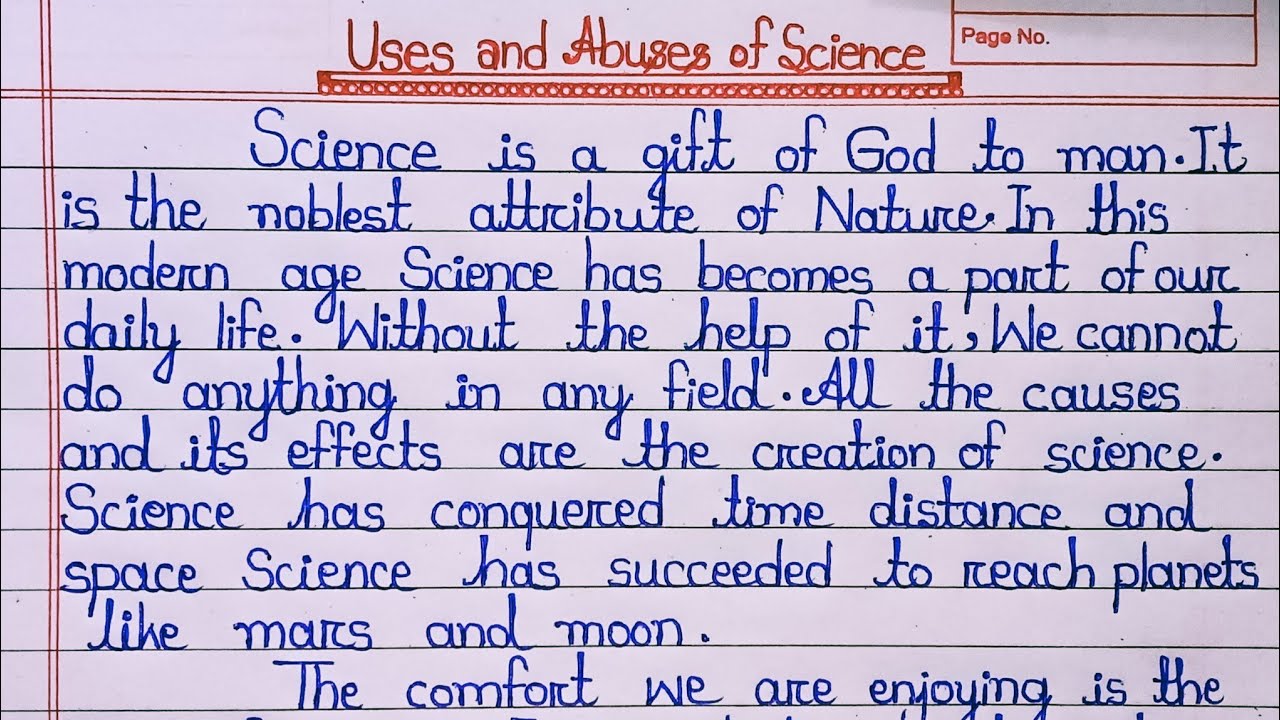 Uses and Abuses of Science
Page No.
Science is a gift of God to man. It
is the noblest attribute of Nature. In this
modern age Science has becomes a part of our
daily life. Without the help of it, We cannot
do anything in any field. All the causes
and its effects are the creation of science.
Science has conquered time distance and
space Science has succeeded to reach planets
like mars and moon.
The comfort we are enjoying is the